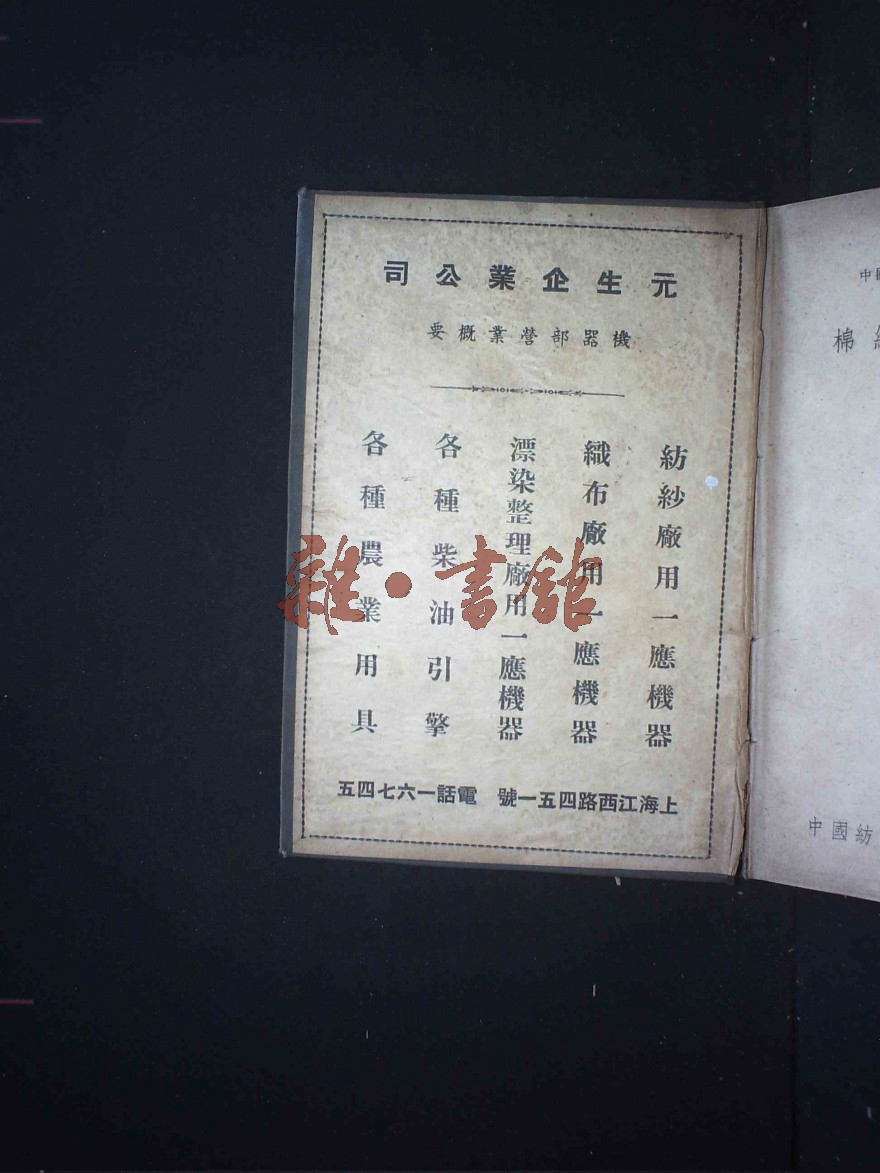 元生企業公司
機器部營業概要
紡紗廠用一應機器
織布廠用一應機器
漂染整理廠用一應機器
各種柴油引擎
各種農業用具
上海江西路四五一號 電話一六七四五
雜·書館
中國
棉
中國紡